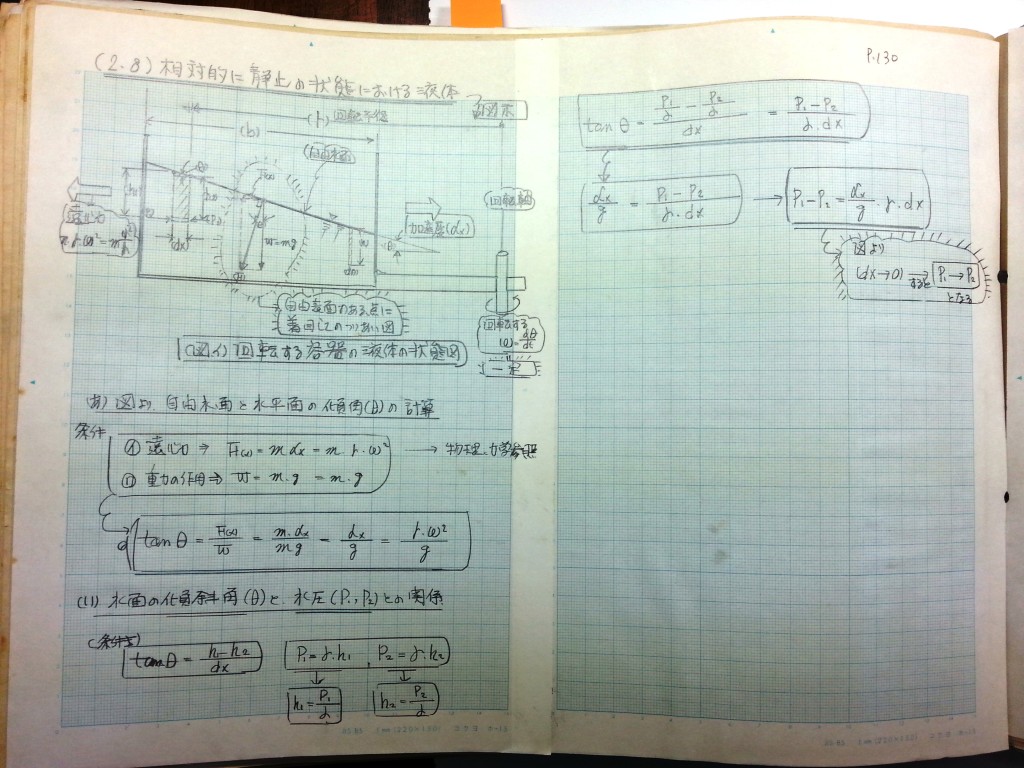 (2.8) 相対的に静止の状態における液体
(r) 回転半径
(b)
自由水面
遠心力
加速度(αx)
回転軸
W=mg
dx
θ
自由表面のある点に
着目してのつりあい図
回転する
ω=dθ/dt
一定
(図イ) 回転する容器の液体の状態図
(あ) 図より 自由水面と水平面の傾角(θ)の計算
条件
㋑ 遠心力 ⇒ F(x) = m αx = m・r・ω² → 物理、力学参照
㋺ 重力の作用 ⇒ W = m・g = m・g
tan θ = F(x)/W = m・αx/mg = αx/g = r・ω²/g
(11) 水面の傾斜角(θ)と、水圧(P1,P2)との関係
(条件)
tan θ = h1-h2/dx
P1=γ.h1, P2=γ.h2
h1=P1/γ
h2=P2/γ
P.130
tan θ = P1/γ - P2/γ / dx = P1-P2/γ.dx
αx/g = P1-P2/γ.dx → P1-P2 = αx/g・γ.dx
図より
(dx→0) すると P1→P2
となる